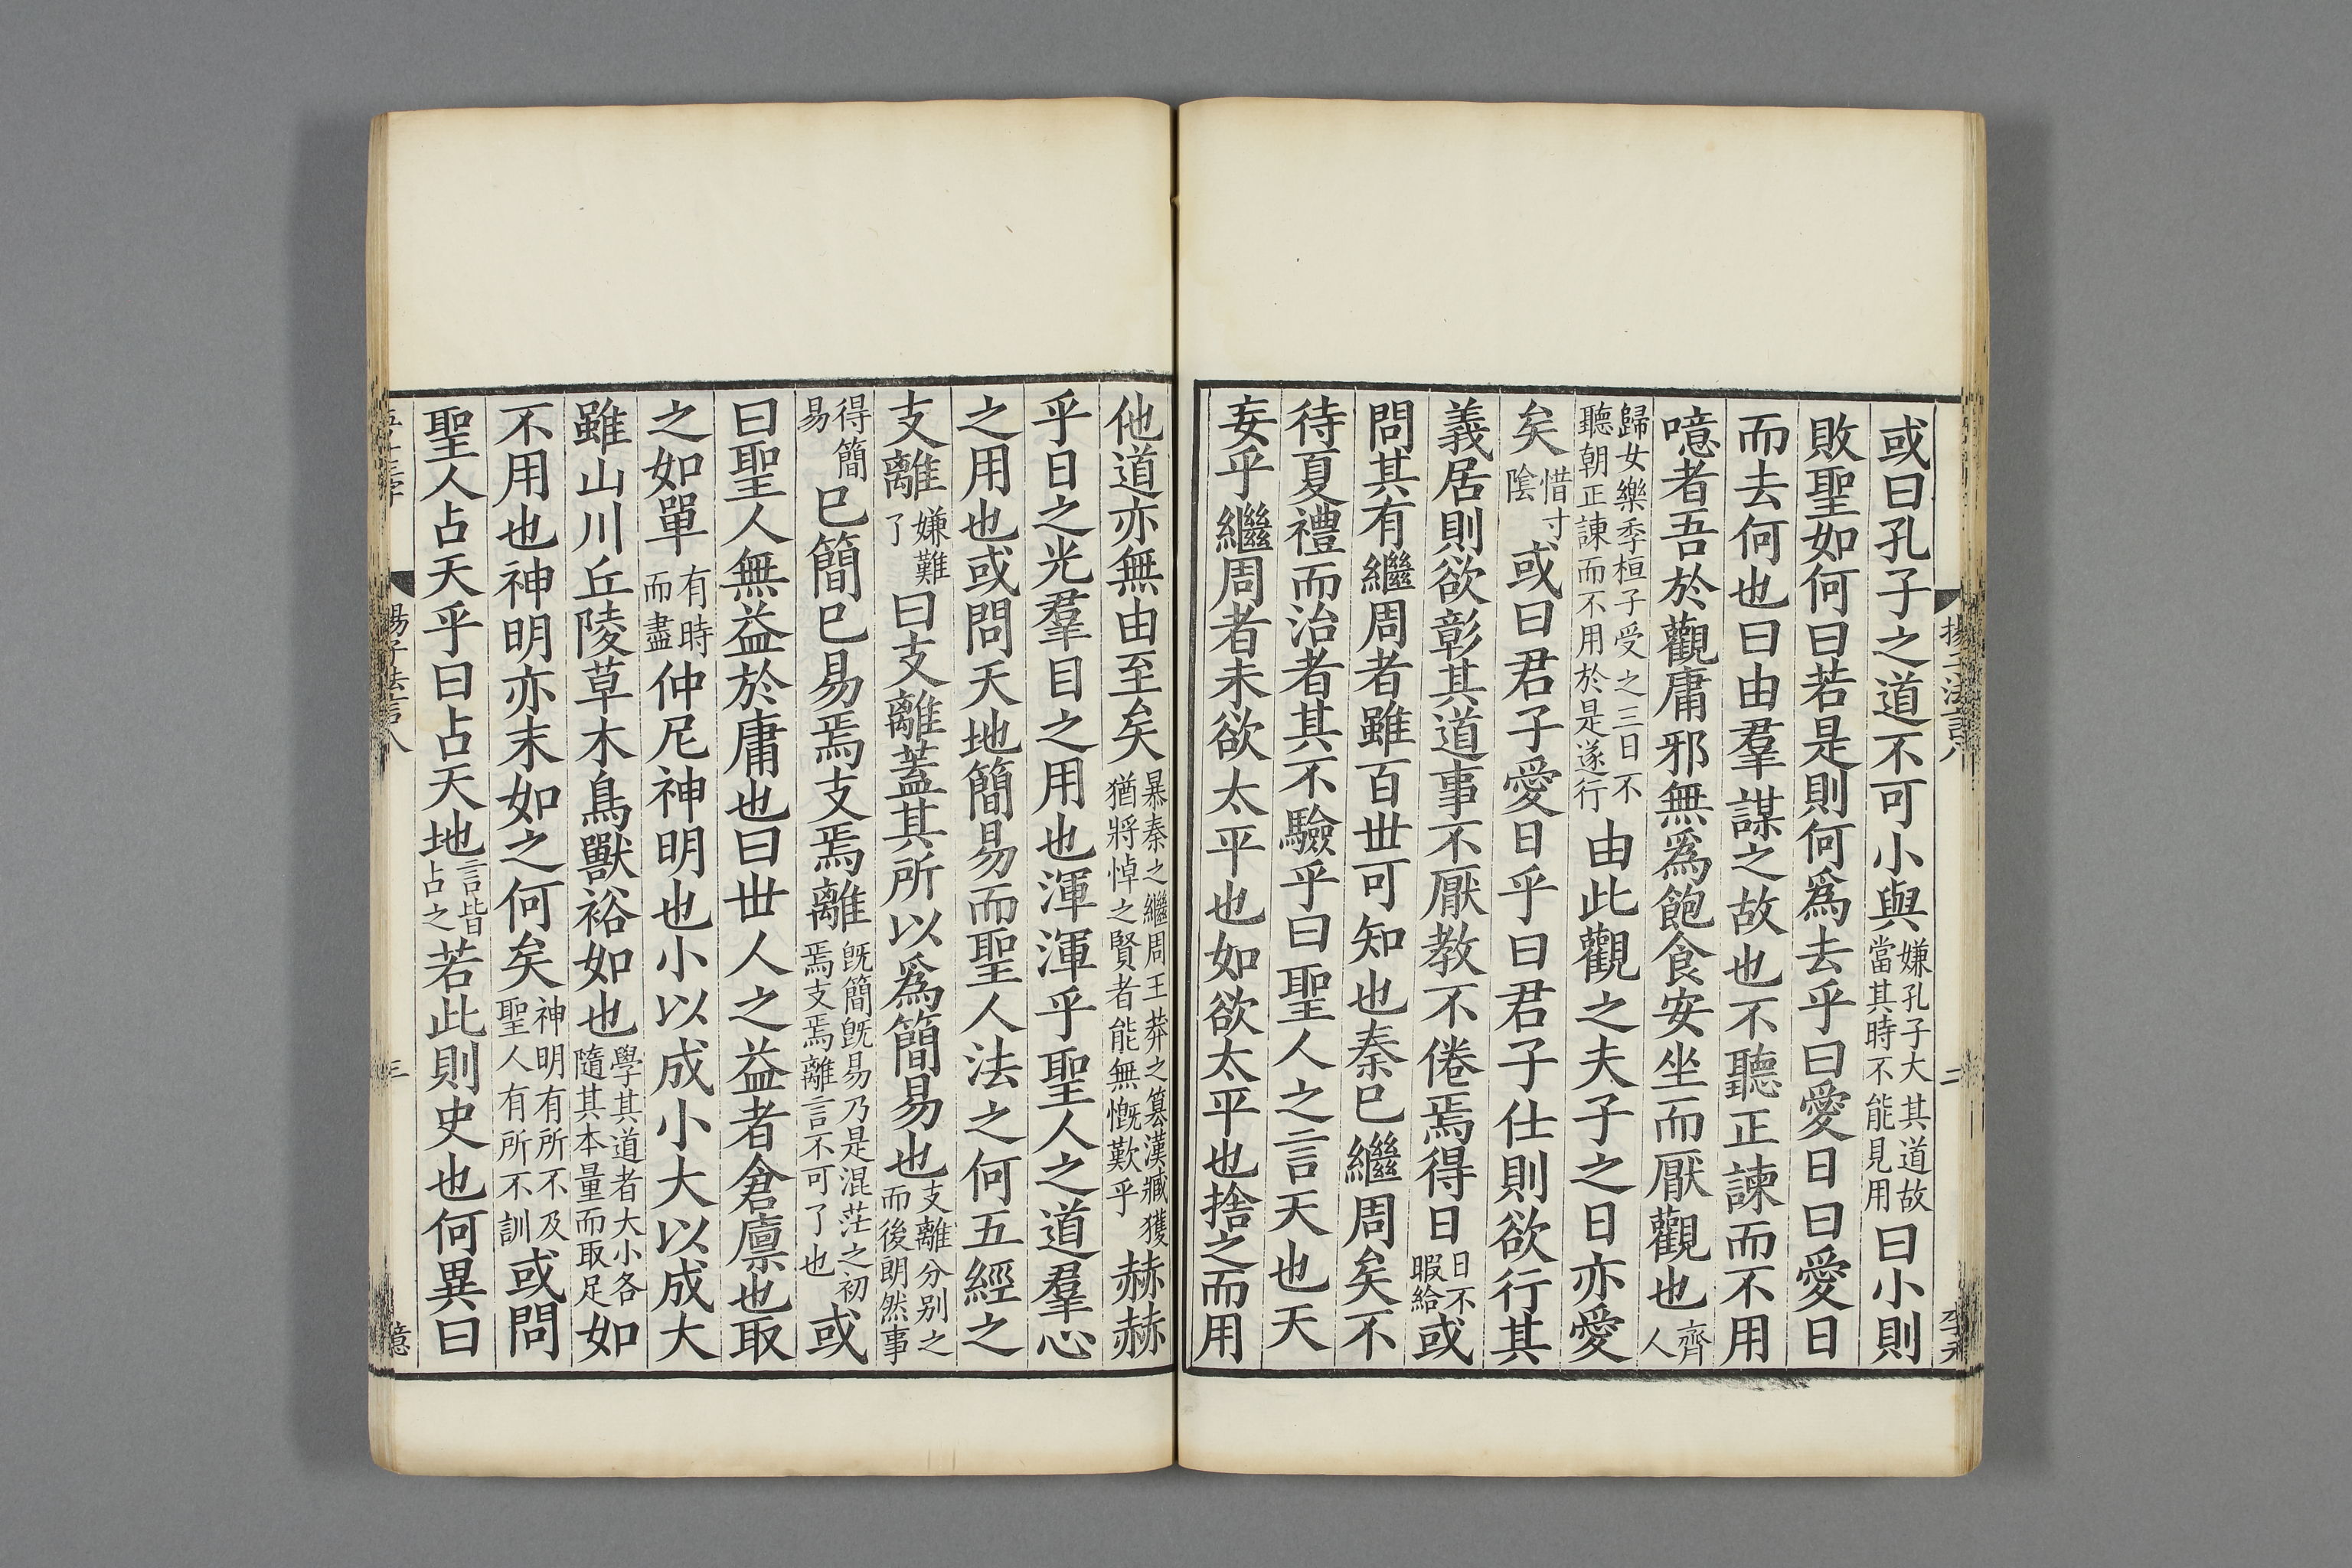 或曰孔子之道不可小與嫌孔子大其道故當其時不能見用曰小則
敗聖如何曰若是則何爲去乎曰愛日曰愛日
而去何也曰由羣謀之故也不聽正諫而不用
噫者吾於觀庸邪無爲飽食安坐而厭觀也齊人
歸女樂季桓子受之三日不聽朝正諫而不用於是遂行由此觀之夫子之日亦愛
矣惜寸陰或曰君子愛日乎曰君子仕則欲行其
義居則欲彰其道事不厭教不倦焉得日日不暇給或
問其有繼周者雖百世可知也秦已繼周矣不
待夏禮而治者其不驗乎曰聖人之言天也天
妄乎繼周者未欲太平也如欲太平也捨之而用
他道亦無由至矣暴秦之繼周王莽之簒漢臧獲猶將悼之賢者能無慨歎乎赫赫
乎日之光羣目之用也渾渾乎聖人之道羣心
之用也或問天地簡易而聖人法之何五經之
支離嫌難了曰支離蓋其所以爲簡易也支離分别之而後朗然事
得簡易已簡已易焉支焉離旣簡旣易乃是混茫之初焉支焉離言不可了也或
曰聖人無益於庸也曰世人之益者倉廩也取
之如單有時而盡仲尼神明也小以成小大以成大
雖山川丘陵草木鳥獸裕如也學其道者大小各隨其本量而取足如
不用也神明亦末如之何矣神明有所不及聖人有所不訓或問
聖人占天乎曰占天地言皆占之若此則史也何異曰
揚子法言八
三